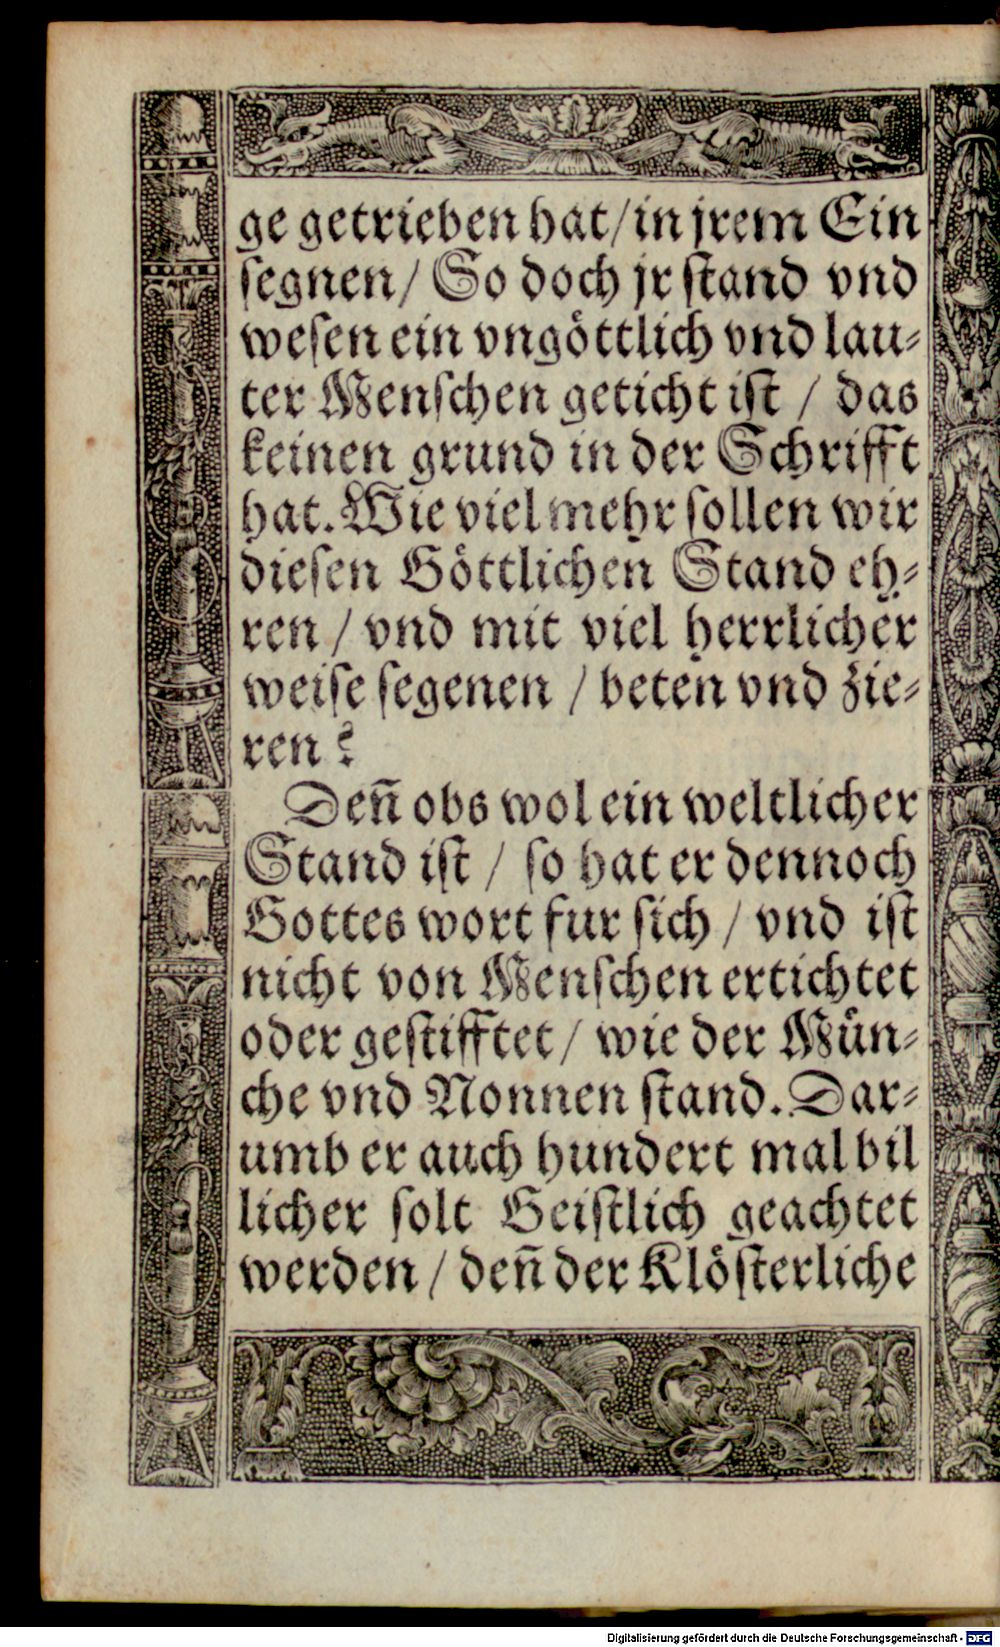 ge getrieben hat/in jrem Ein
segnen/ So doch jr stand vnd
wesen ein vngöttlich vnd lau⸗
ter Menschen geticht ist / das
keinen grund in der Schrifft
hat. Wie viel mehr sollen wir
diesen Göttlichen Stand eh⸗
ren / vnd mit viel herrlicher
weise segenen / beten vnd zie⸗
ren?
Deñ obs wol ein weltlicher
Stand ist / so hat er dennoch
Gottes wort fur sich / vnd ist
nicht von Menschen ertichtet
oder gestifftet/ wie der Mün⸗
che vnd Nonnen stand. Dar⸗
umb er auch hundert mal bil
licher solt Geistlich geachtet
werden / deñ der Klösterliche
Digitalisierung gefördert durch die Deutsche Forschungsgemeinschaft - DFG